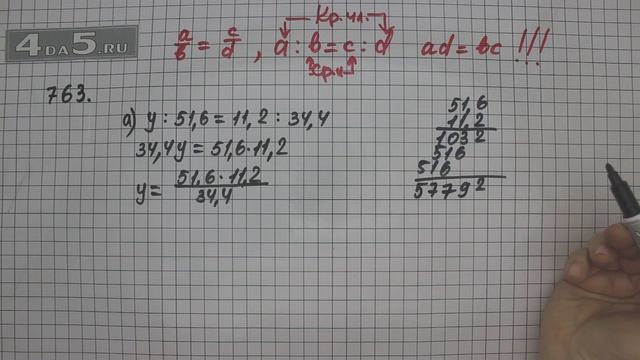 4DA5.RU
Кр.чл.
a/b = c/d , a : b = c : d ad = bc !!!
ср.чл
763.
а) y : 51,6 = 11,2 : 34,4
34,4y = 51,6 · 11,2
y = 51,6 · 11,2 / 34,4
51,6
11,2
1032
516
516
57792